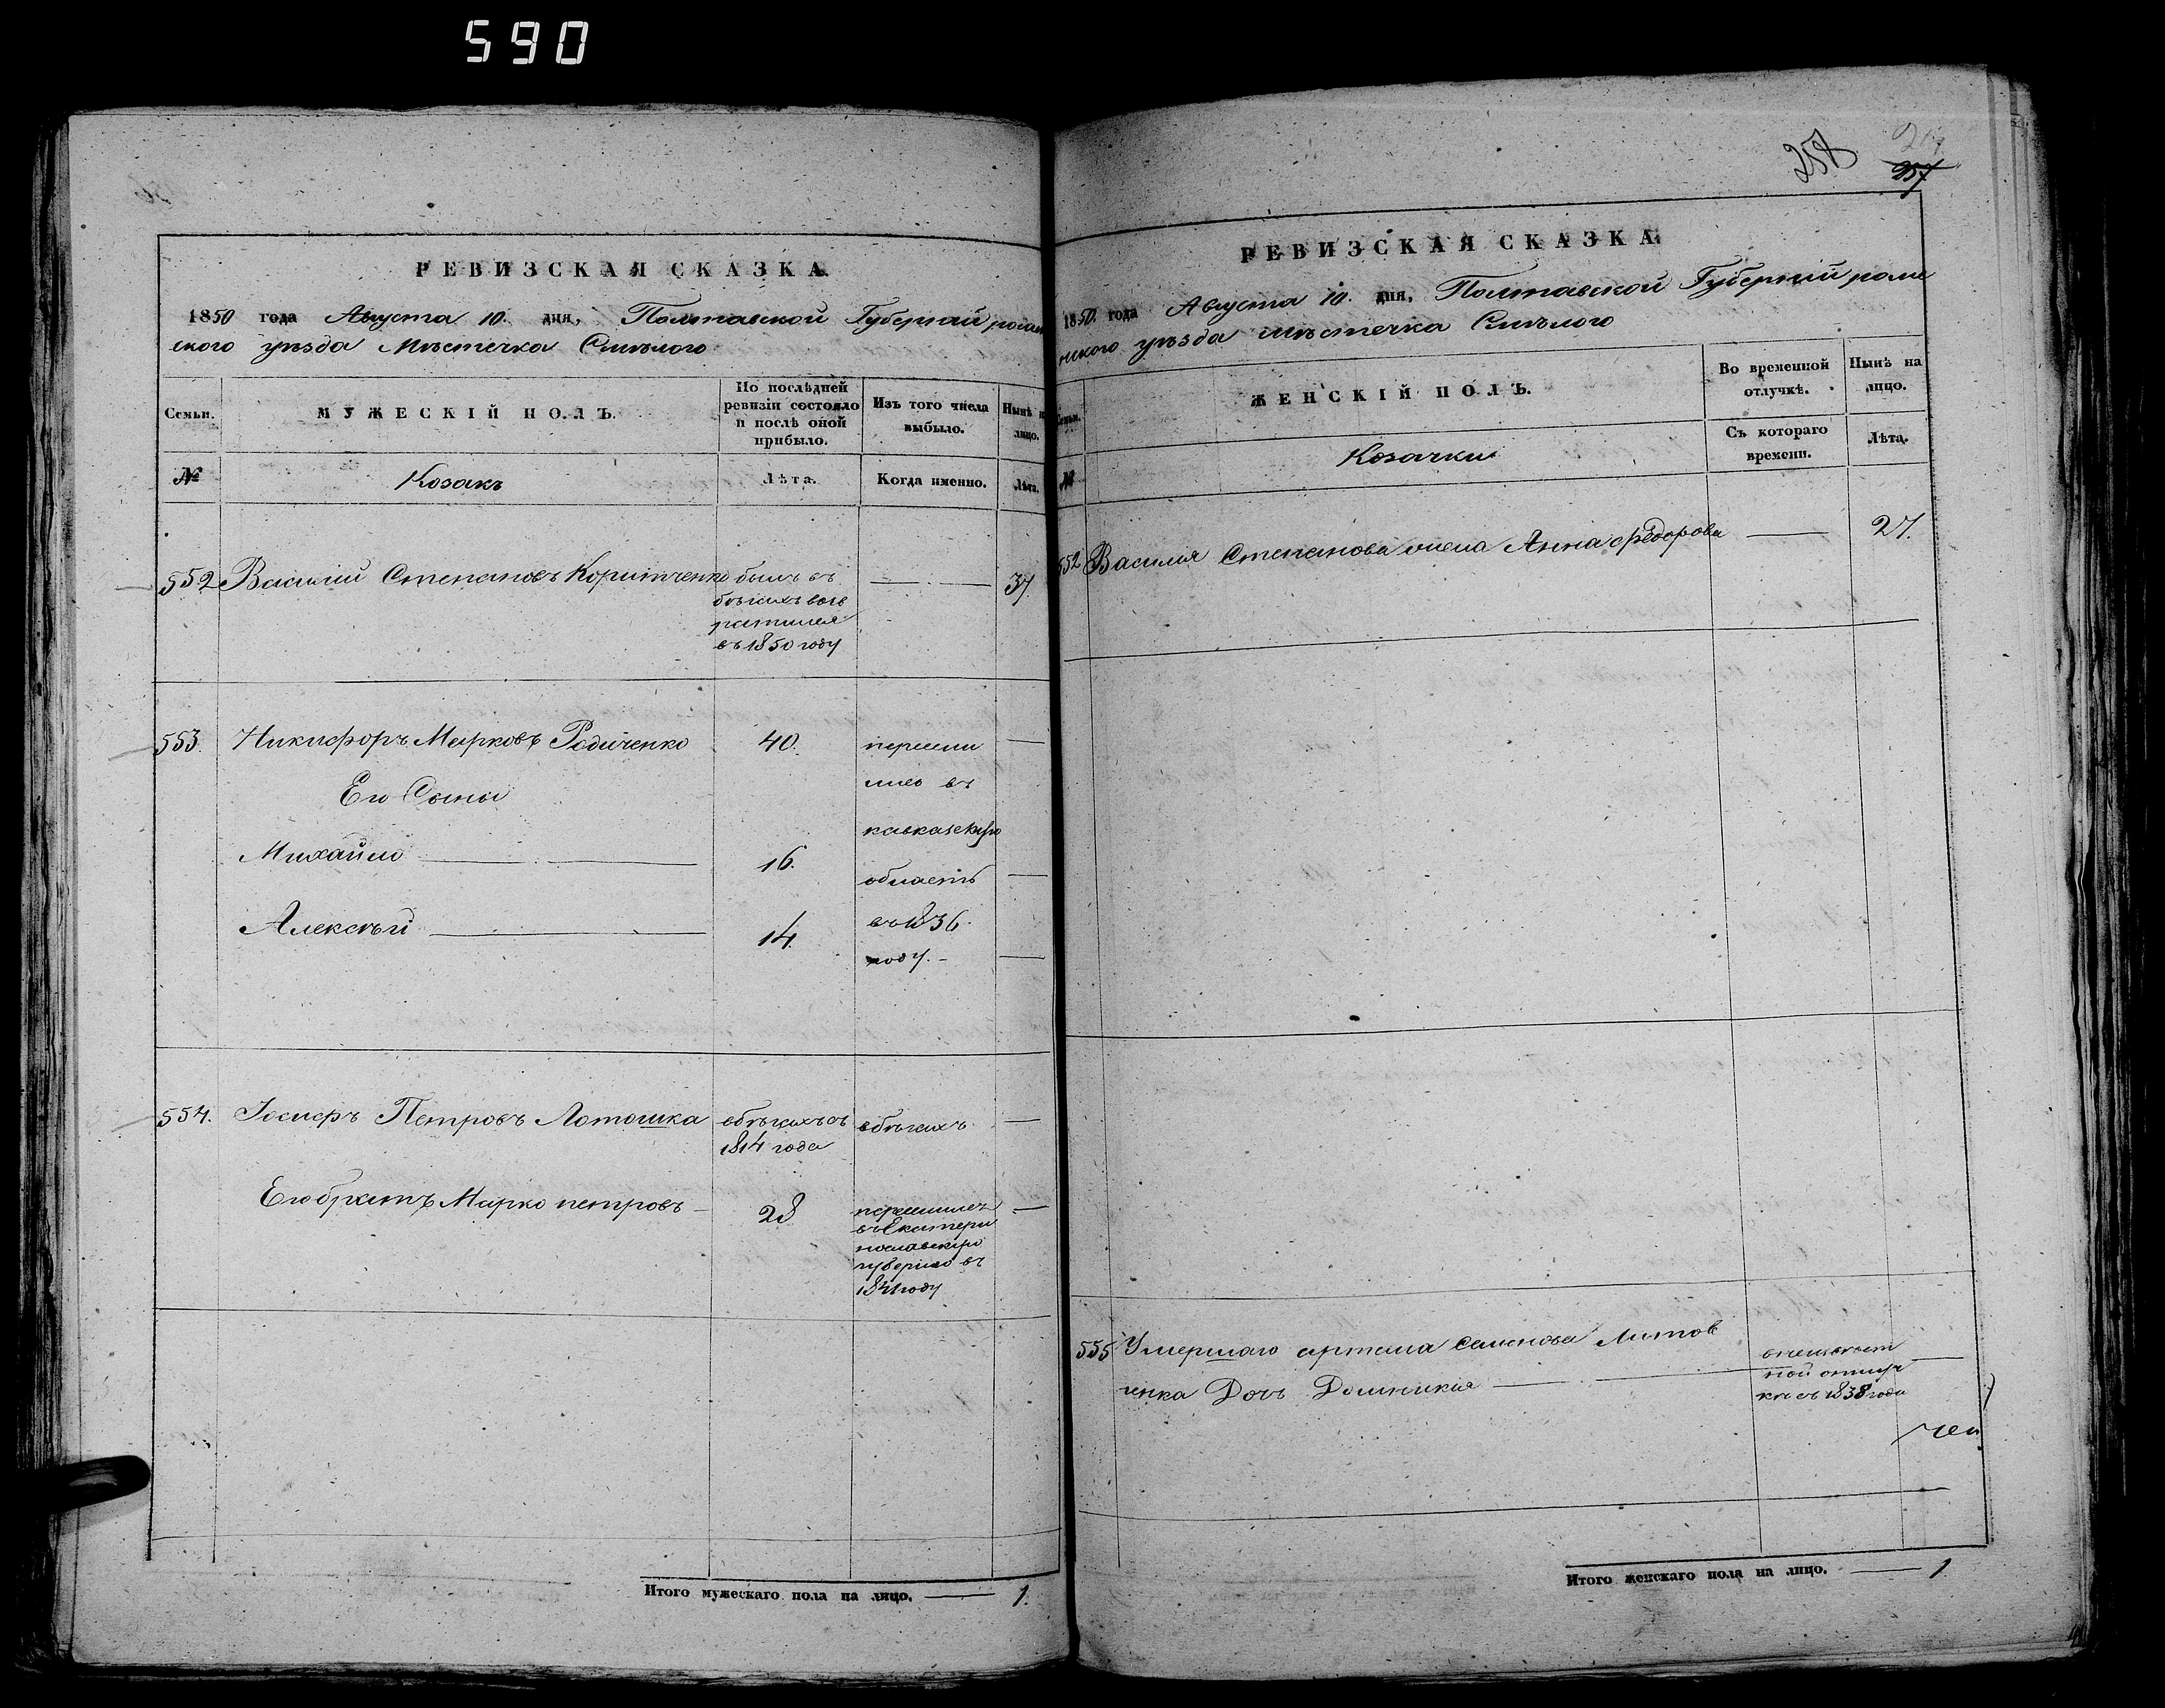 590
РЕВИЗСКАЯ СКАЗКА.
1850 года Августа 10. дня, Полтавской Губерній ромен
ского уѣзда Мѣстечка Смѣлого
Семьи.
МУЖЕСКІЙ ПОЛЪ.
По послѣдней
ревизіи состояло
и послѣ оной
прибыло.
Изъ того числа
выбыло.
Нынѣ на
лицо.
№
Козакъ
Лѣта.
Когда именно.
Лѣта.
552 Василій Степановъ Коритченко
былъ въ
бѣгахъ воз
ратился
въ 1850 году
37
553. Никифоръ Марковъ Радиченко 40.
Его Сыны
Михайло 16.
Алексѣй 14.
пересели
лись въ
кавказскую
область
въ 1836.
году.
554. Іосифъ Петровъ Лотошка
вбѣгахъ съ
1814 года
вбѣгахъ
Его братъ Марко петровъ 28
переселилсь
въ Екатери
нославскую
губернію въ
1841 году
Итого мужескаго пола на лицо. 1.
258
257
РЕВИЗСКАЯ СКАЗКА.
1850 года Августа 10. дня, Полтавской Губерній роме
нского уѣзда мѣстечка Смѣлого
Семьи.
ЖЕНСКІЙ ПОЛЪ.
Во временной
отлучкѣ.
Нынѣ на
лицо.
№
Козачки
Съ котораго
времени.
Лѣта.
552 Василія Степанова жена Анна Федорова 27.
555 Умершаго артема Семенова Литов
ченка Дочь Домникія
внеизвѣст
ной отлуч
кѣ съ 1838 года
Итого женскаго пола на лицо. 1